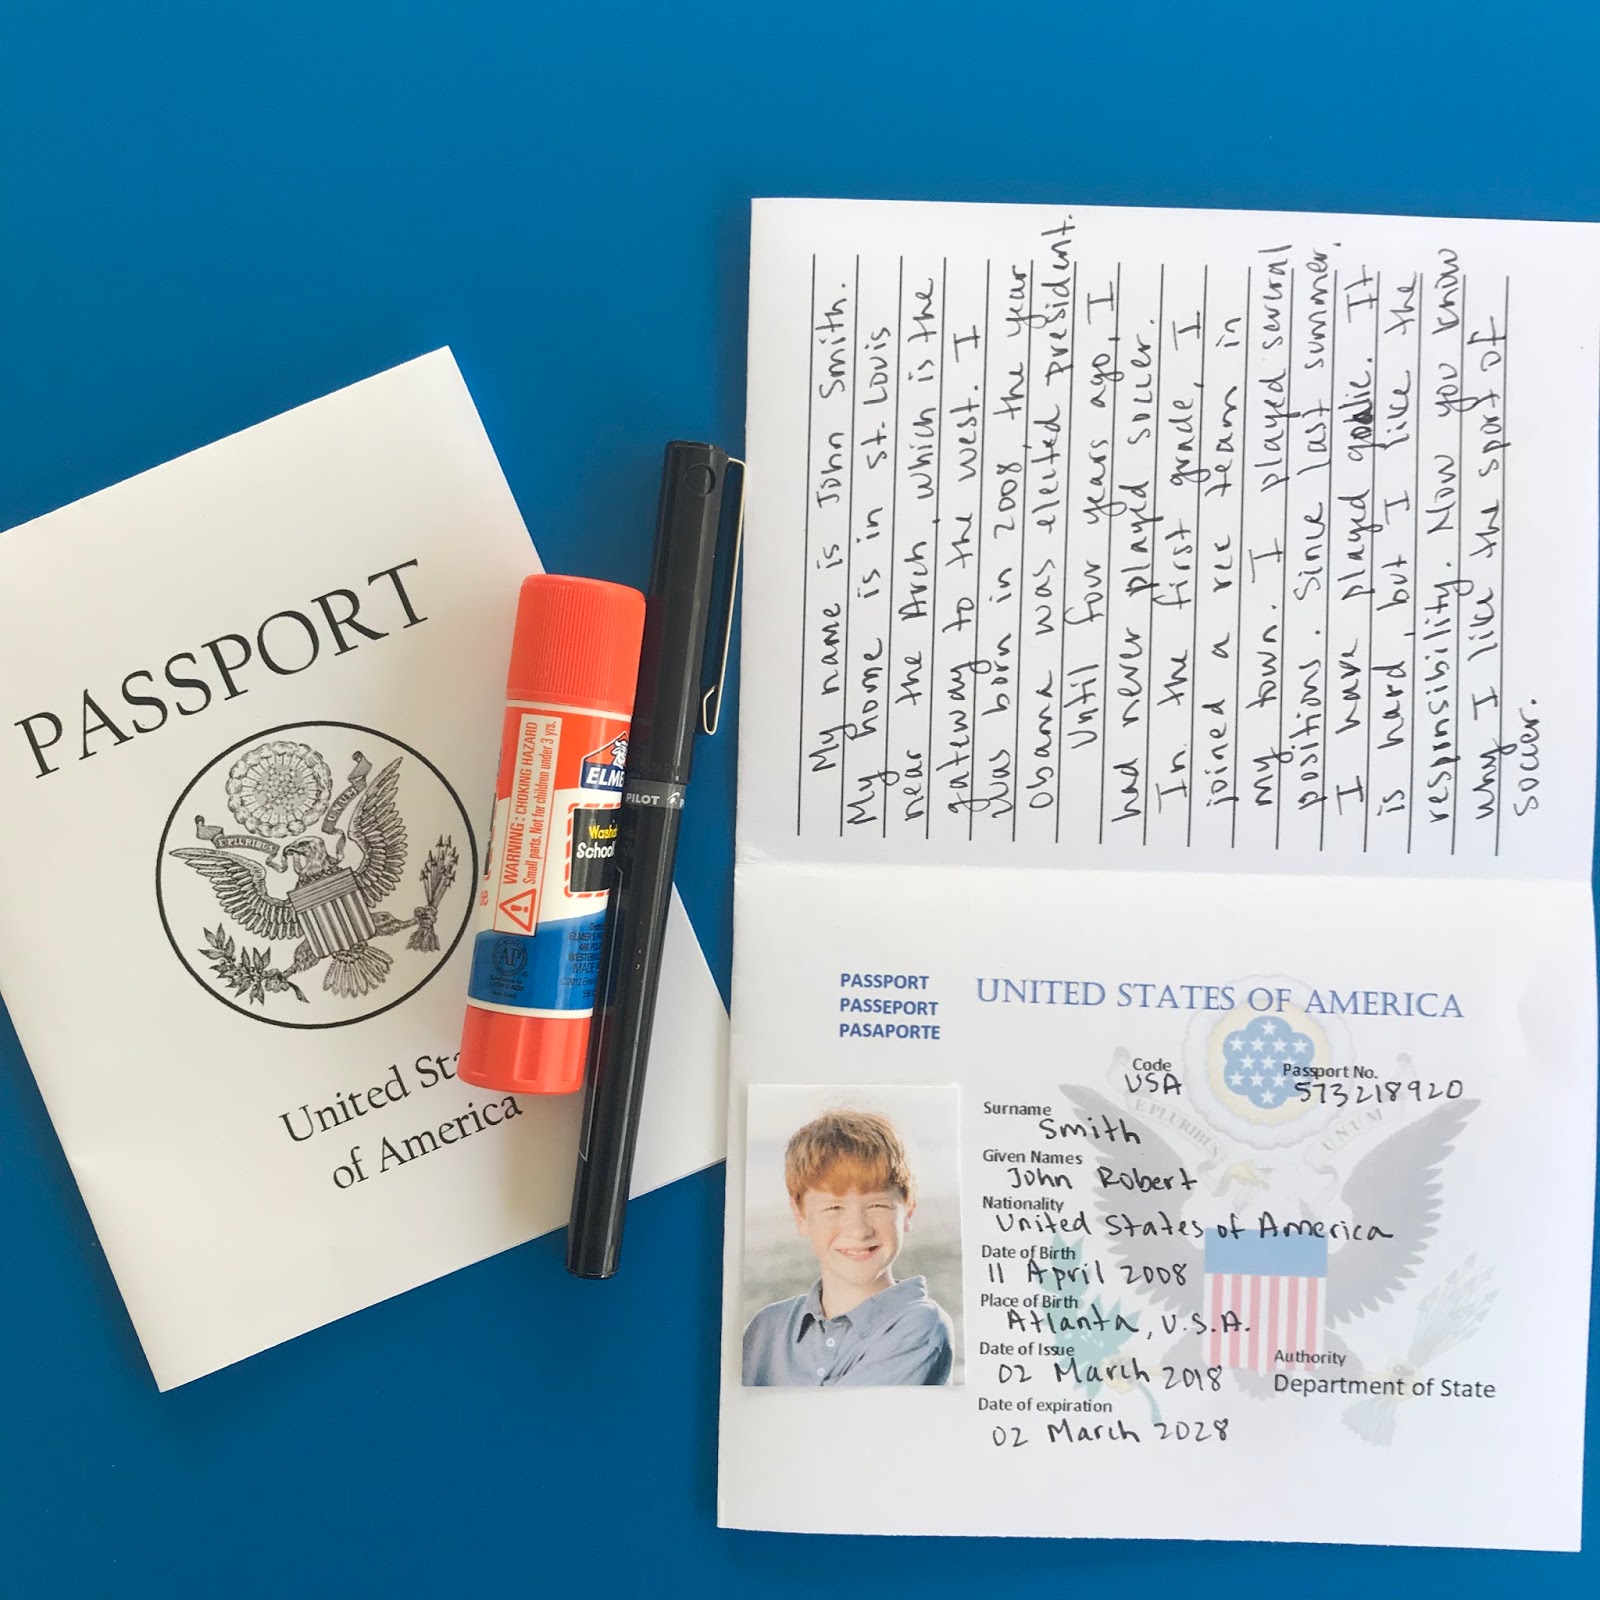 PASSPORT
E PLURIBUS
UNUM
United Sta
of America
WARNING: CHOKING HAZARD
Small parts. Not for children under 3 yrs.
ELME
Washa
School
AP
PILOT
My name is John Smith.
My home is in St. Louis
near the Arch, which is the
gateway to the west. I
was born in 2008 the year
Obama was elected president.
Until four years ago, I
had never played soccer.
In the first grade, I
joined a rec team in
my town. I played several
positions. Since last summer,
I have played goalie. It
is hard, but I like the
responsibility. Now you know
why I like the sport of
soccer.
PASSPORT
PASSEPORT
PASAPORTE
UNITED STATES OF AMERICA
Code
USA
Passport No.
573218920
E PLURIBUS
UNUM
Surname
Smith
Given Names
John Robert
Nationality
United States of America
Date of Birth
11 April 2008
Place of Birth
Atlanta, U.S.A.
Date of Issue
02 March 2018
Authority
Department of State
Date of expiration
02 March 2028